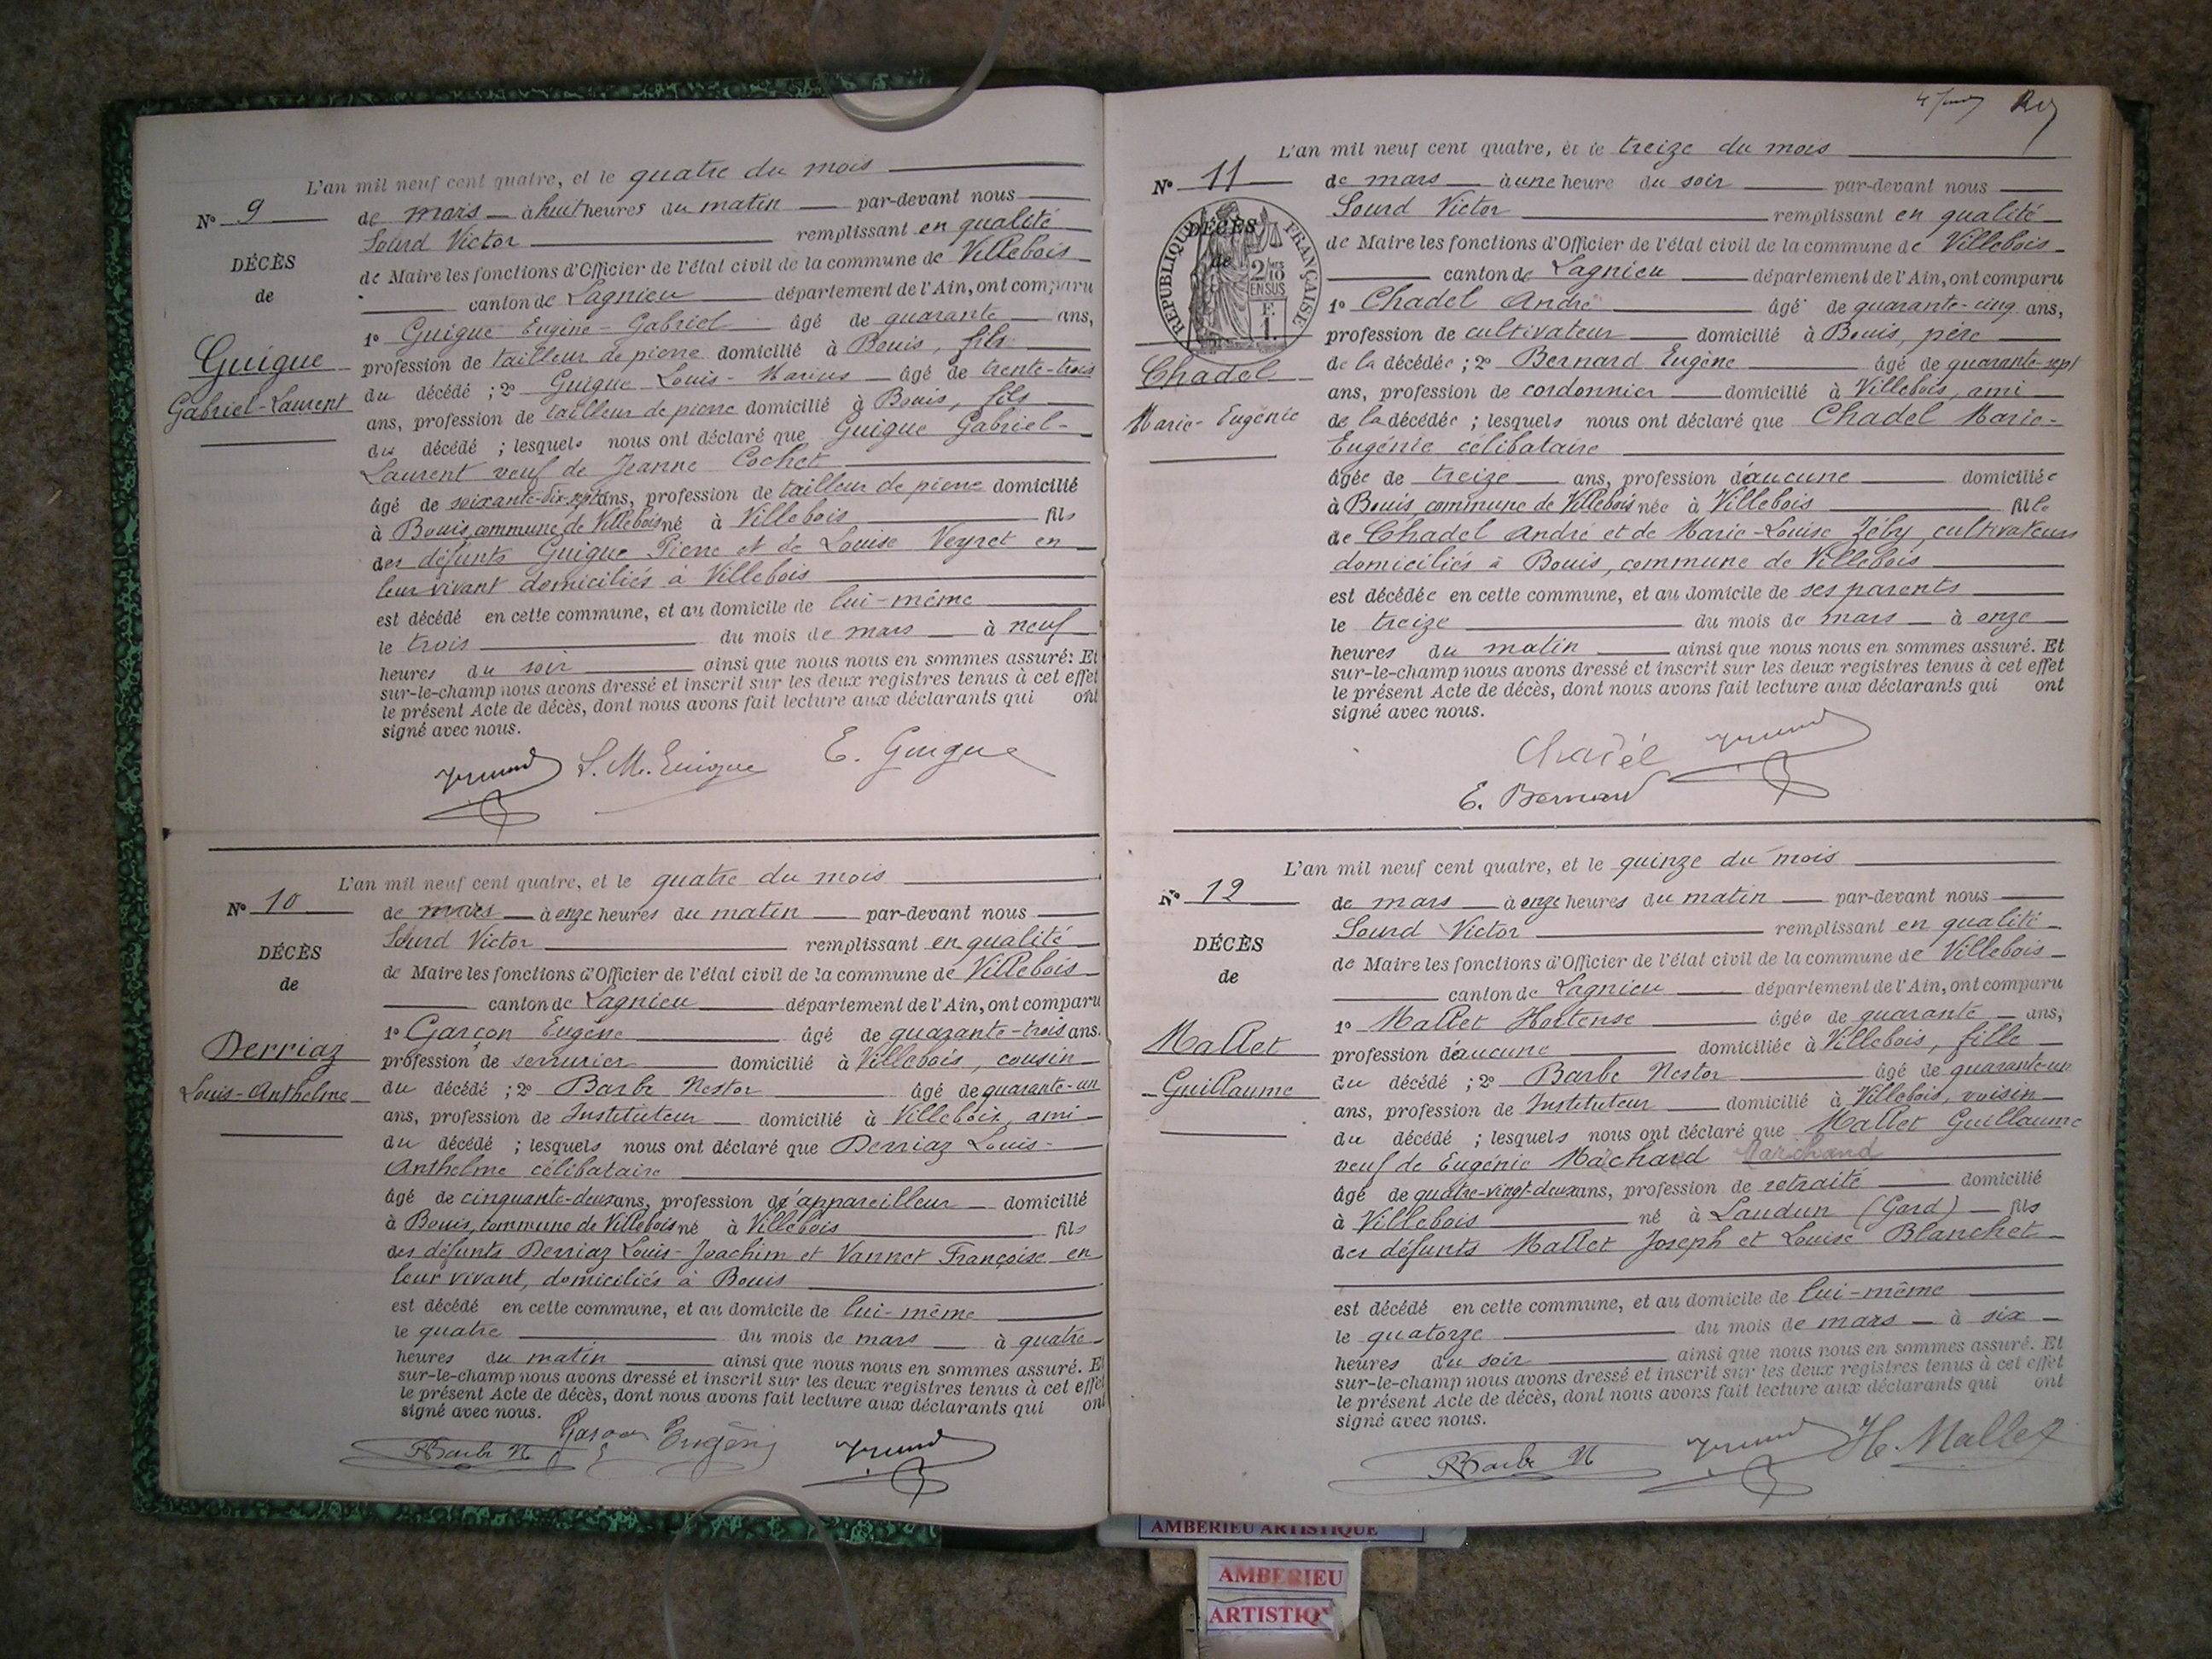 L'an mil neuf cent quatre, et le quatre du mois
N° 9
de mars à huit heures du matin par-devant nous
Sourd Victor remplissant en qualité
DÉCÈS
de Maire les fonctions d'Officier de l'état civil de la commune de Villebois
de
canton de Lagnieu département de l'Ain, ont comparu
1° Guigue Eugène-Gabriel âgé de quarante ans,
Guigue
profession de tailleur de pierre domicilié à Bouis, fils
Gabriel-Laurent
du décédé ; 2° Guigue Louis-Marius âgé de trente-trois
ans, profession de tailleur de pierre domicilié à Bouis, fils
du décédé ; lesquels nous ont déclaré que Guigue Gabriel-
Laurent veuf de Jeanne Cochet
âgé de soixante-dix-sept ans, profession de tailleur de pierre domicilié
à Bouis, commune de Villebois né à Villebois fils
des défunts Guigue Pierre et de Louise Veyret en
leur vivant domiciliés à Villebois
est décédé en cette commune, et au domicile de lui-même
le trois du mois de mars à neuf
heures du soir ainsi que nous nous en sommes assuré. Et
sur-le-champ nous avons dressé et inscrit sur les deux registres tenus à cet effet
le présent Acte de décès, dont nous avons fait lecture aux déclarants qui ont
signé avec nous.
L. M. Guigue E. Guigue
L'an mil neuf cent quatre, et le quatre du mois
N° 10
de mars à onze heures du matin par-devant nous
Sourd Victor remplissant en qualité
DÉCÈS
de Maire les fonctions d'Officier de l'état civil de la commune de Villebois
de
canton de Lagnieu département de l'Ain, ont comparu
1° Garçon Eugène âgé de quarante-trois ans.
Derriaz
profession de serrurier domicilié à Villebois, cousin
Louis-Anthelme
du décédé ; 2° Barbe Nestor âgé de quarante-un
ans, profession de Instituteur domicilié à Villebois, ami
du décédé ; lesquels nous ont déclaré que Derriaz Louis-
Anthelme célibataire
âgé de cinquante-deux ans, profession d'appareilleur domicilié
à Bouis, commune de Villebois né à Villebois fils
des défunts Derriaz Louis-Joachim et Vannet Françoise en
leur vivant, domiciliés à Bouis
est décédé en cette commune, et au domicile de lui-même
le quatre du mois de mars à quatre
heures du matin ainsi que nous nous en sommes assuré. Et
sur-le-champ nous avons dressé et inscrit sur les deux registres tenus à cet effet
le présent Acte de décès, dont nous avons fait lecture aux déclarants qui ont
signé avec nous.
Garçon Eugène
Barbe N
L'an mil neuf cent quatre, et le treize du mois
N° 11
de mars à une heure du soir par-devant nous
Sourd Victor remplissant en qualité
DÉCÈS
de Maire les fonctions d'Officier de l'état civil de la commune de Villebois
de
RÉPUBLIQUE FRANÇAISE
2/10 EN SUS
F. 1.
canton de Lagnieu département de l'Ain, ont comparu
1° Chadel André âgé de quarante-cinq ans,
profession de cultivateur domicilié à Bouis, père
Chadel
de la décédée ; 2° Bernard Eugène âgé de quarante-sept
ans, profession de cordonnier domicilié à Villebois, ami
Marie-Eugénie
de la décédée ; lesquels nous ont déclaré que Chadel Marie-
Eugénie célibataire
âgée de treize ans, profession d'aucune domiciliée
à Bouis, commune de Villebois née à Villebois fille
de Chadel André et de Marie-Louise Zéby, cultivateurs
domiciliés à Bouis, commune de Villebois
est décédée en cette commune, et au domicile de ses parents
le treize du mois de mars à onze
heures du matin ainsi que nous nous en sommes assuré. Et
sur-le-champ nous avons dressé et inscrit sur les deux registres tenus à cet effet
le présent Acte de décès, dont nous avons fait lecture aux déclarants qui ont
signé avec nous.
Chadel
E. Bernard
L'an mil neuf cent quatre, et le quinze du mois
N° 12
de mars à onze heures du matin par-devant nous
Sourd Victor remplissant en qualité
DÉCÈS
de Maire les fonctions d'Officier de l'état civil de la commune de Villebois
de
canton de Lagnieu département de l'Ain, ont comparu
1° Mallet Hortense âgée de quarante ans,
Mallet
profession d'aucune domiciliée à Villebois, fille
Guillaume
du décédé ; 2° Barbe Nestor âgé de quarante-un
ans, profession de Instituteur domicilié à Villebois, voisin
du décédé ; lesquels nous ont déclaré que Mallet Guillaume
veuf de Eugénie Machard Marchand
âgé de quatre-vingt-deux ans, profession de retraité domicilié
à Villebois né à Laudun (Gard) fils
des défunts Mallet Joseph et Louise Blanchet
est décédé en cette commune, et au domicile de lui-même
le quatorze du mois de mars à six
heures du soir ainsi que nous nous en sommes assuré. Et
sur-le-champ nous avons dressé et inscrit sur les deux registres tenus à cet effet
le présent Acte de décès, dont nous avons fait lecture aux déclarants qui ont
signé avec nous.
Barbe N H. Mallet
AMBERIEU ARTISTIQUE
AMBERIEU
ARTISTIQ